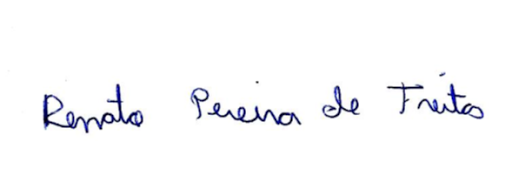 Renato Pereira de Freitas